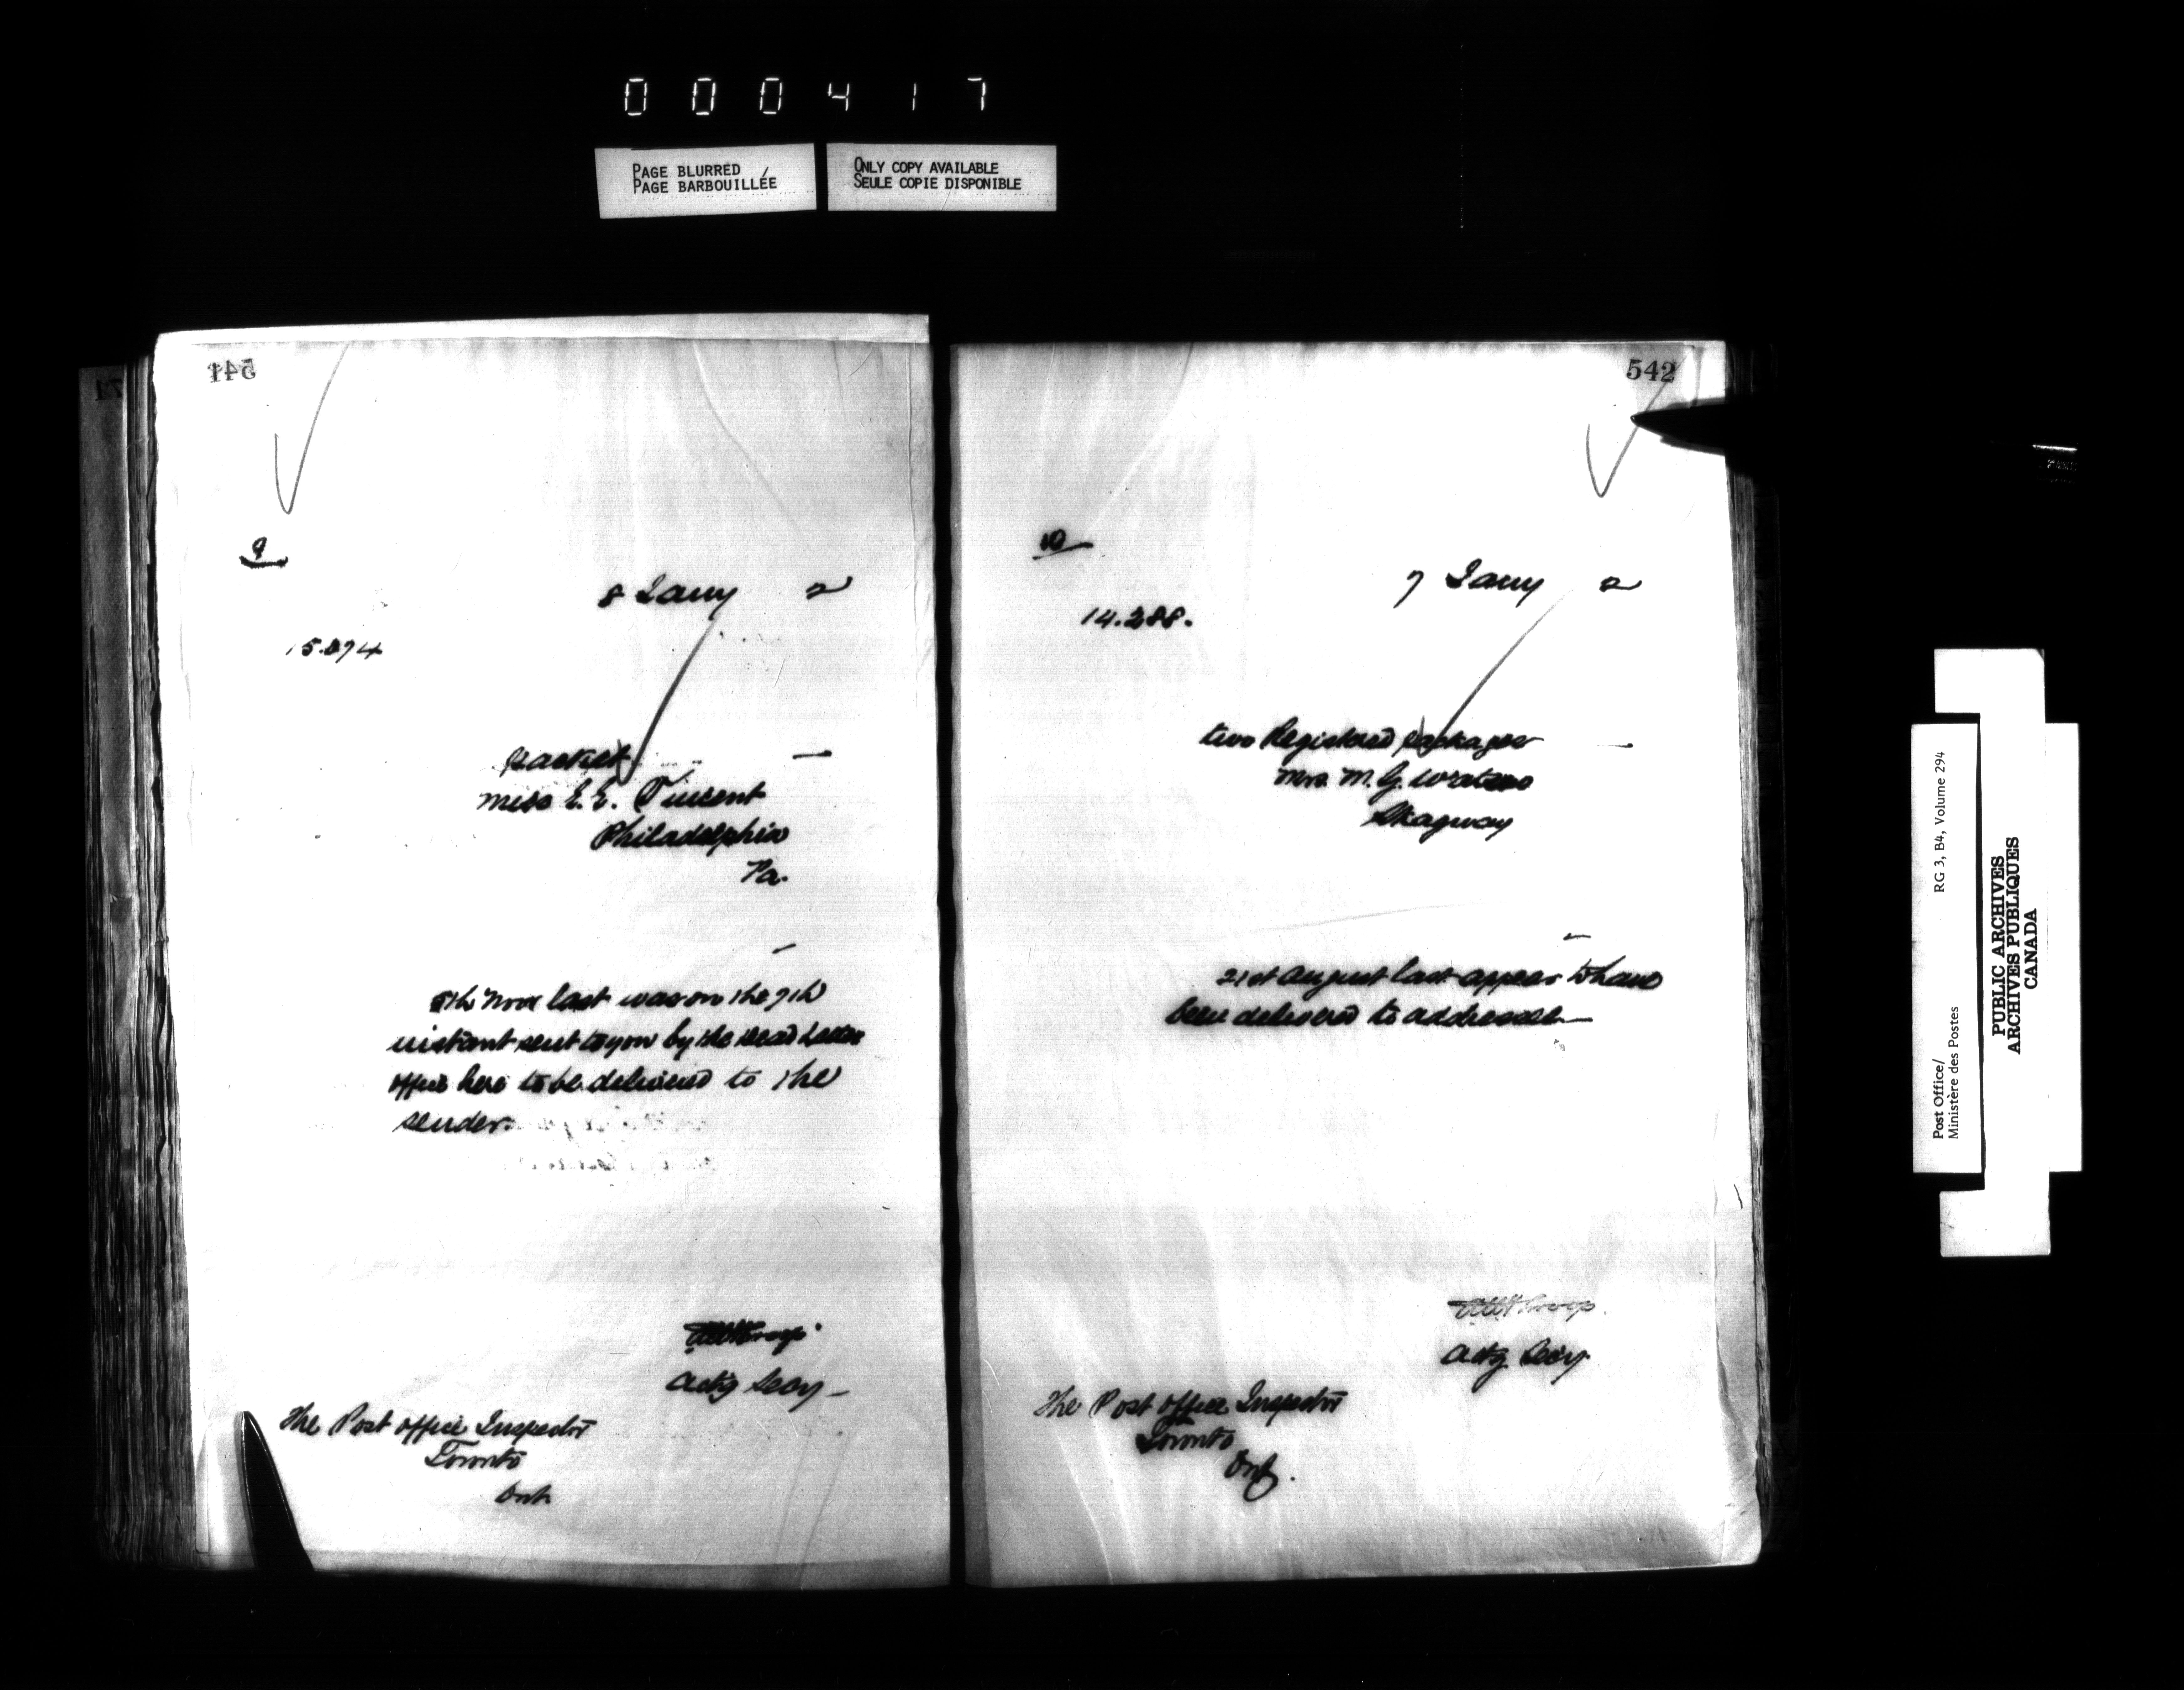 000417
PAGE BLURRED
PAGE BARBOUILLÉE
ONLY COPY AVAILABLE
SEULE COPIE DISPONIBLE
541
9
8 Jany 2
15.874
packet
Miss E. E. Vincent
Philadelphia
Pa.
8th Novr last was on the 7th
instant sent to you by the Dead Letter
Office here to be delivered to the
sender.
Actg Secy
The Post Office Inspector
Toronto
Ont.
542
10
7 Jany 2
14.288.
two Registered packages
Mrs. M. G.
Skagway
21st August last appear to have
been delivered to addressee
Actg Secy
The Post Office Inspector
Toronto
Ont.
Post Office/
Ministère des Postes
RG 3, B4, Volume 294
PUBLIC ARCHIVES
ARCHIVES PUBLIQUES
CANADA